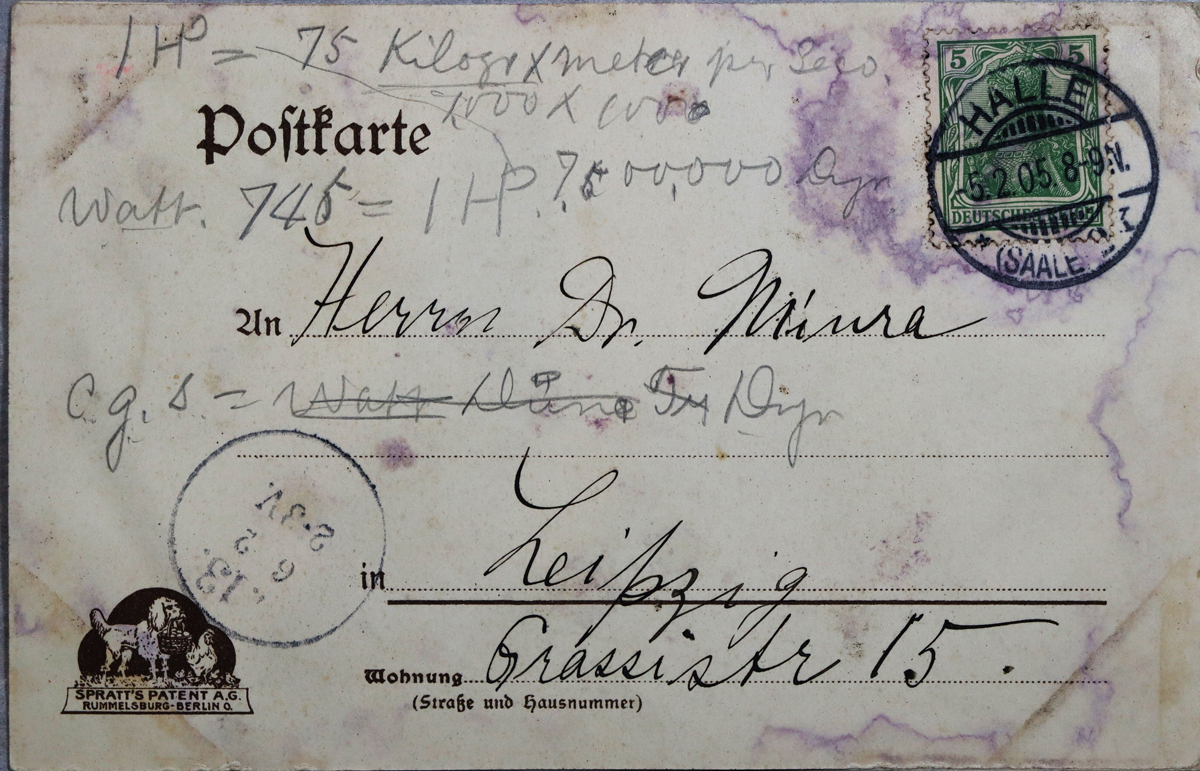 1 HP = 75 Kilogr x meter per Seco.
1000 x 1000
Postkarte
75 00,000 Dyn
Watt. 745 = 1 HP.
5 5
DEUTSCHES REICH
HALLE
5.2.05. 8-9N.
* (SAALE) 2 *
An Herrn Dr. Miura
C. g. s. = Watt Dyn
Leipzig
in
Grassistr 15.
Wohnung
(Straße und Hausnummer)
13.
6 2
2-3V
SPRATT'S PATENT A.G.
RUMMELSBURG-BERLIN O.